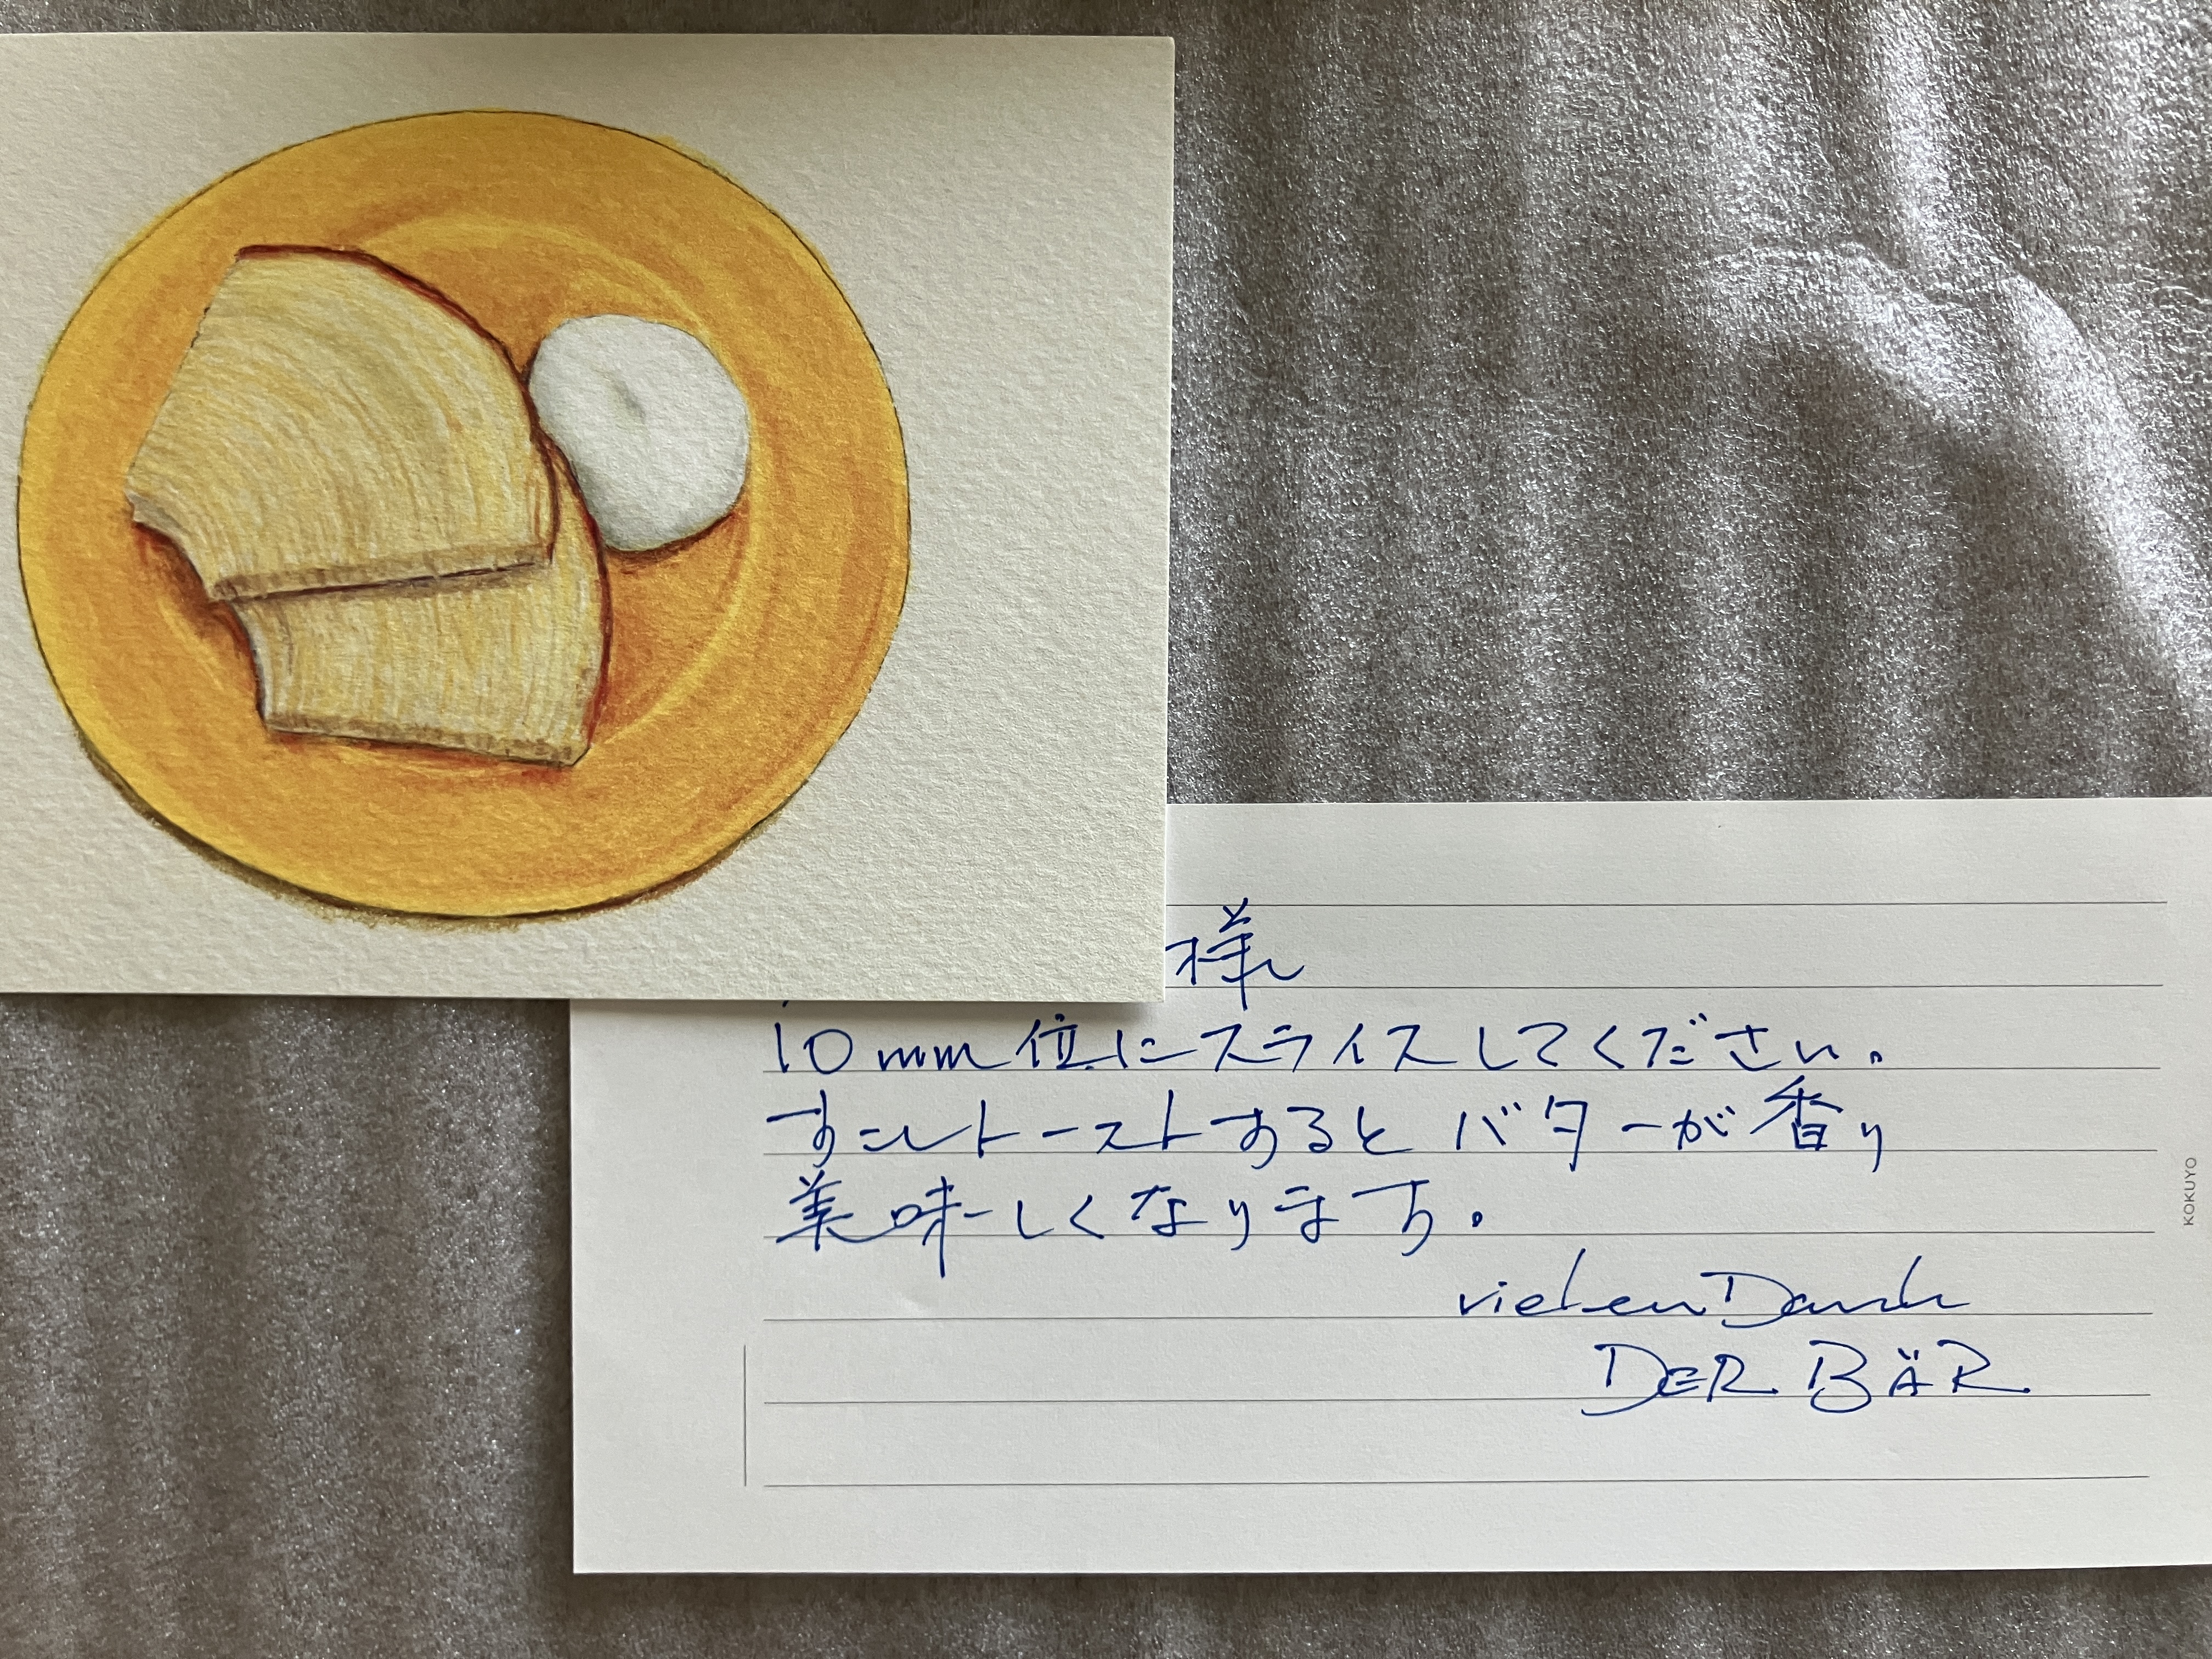 様
10mm位にスライスしてください。
すこしトーストするとバターが香り
美味しくなります。
vielen Dank
DER BÄR
KOKUYO